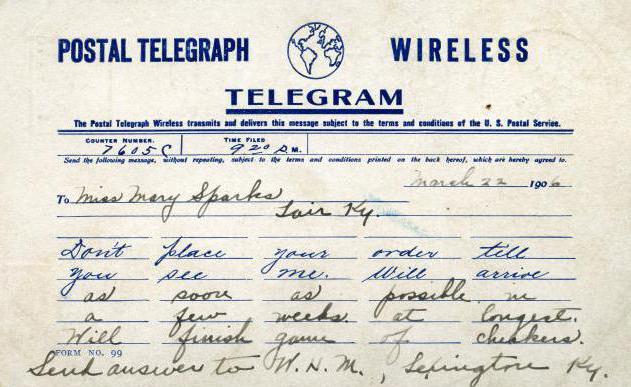 POSTAL TELEGRAPH WIRELESS
TELEGRAM
The Postal Telegraph Wireless transmits and delivers this message subject to the terms and conditions of the U. S. Postal Service.
COUNTER NUMBER. TIME FILED
7605C 920 P.M.
Send the following message, without repeating, subject to the terms and conditions printed on the back hereof, which are hereby agreed to.
March 22 1906
To Miss Mary Sparks
Lair Ky.
Don't place your order till
you see me. Will arrive
as soon as possible in
a few weeks. at longest.
Will finish game of checkers.
FORM NO. 99
Send answer to W. N. M., Lexington Ky.